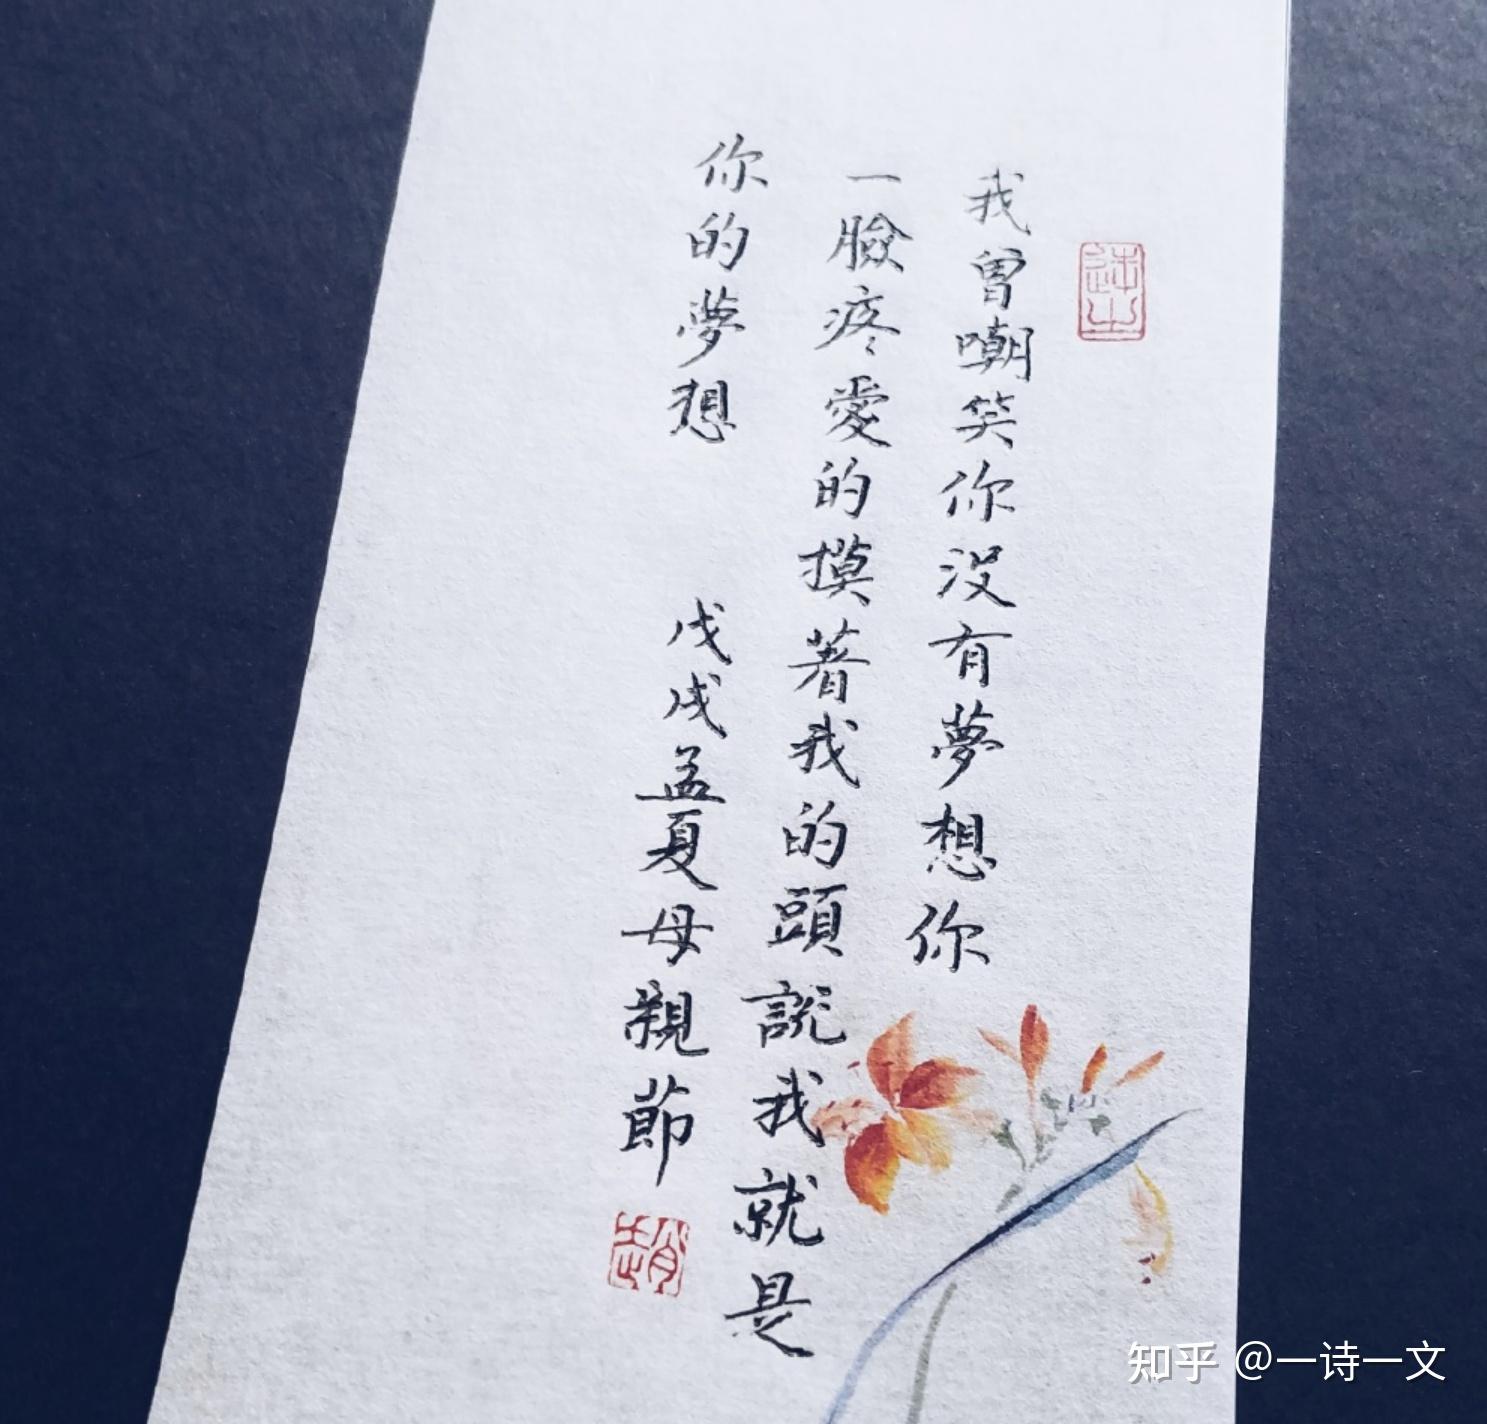 我曾嘲笑你没有夢想你
一臉疼愛的摸著我的頭說我就是
你的夢想
戊戌孟夏母親節
趙
知乎 @一诗一文